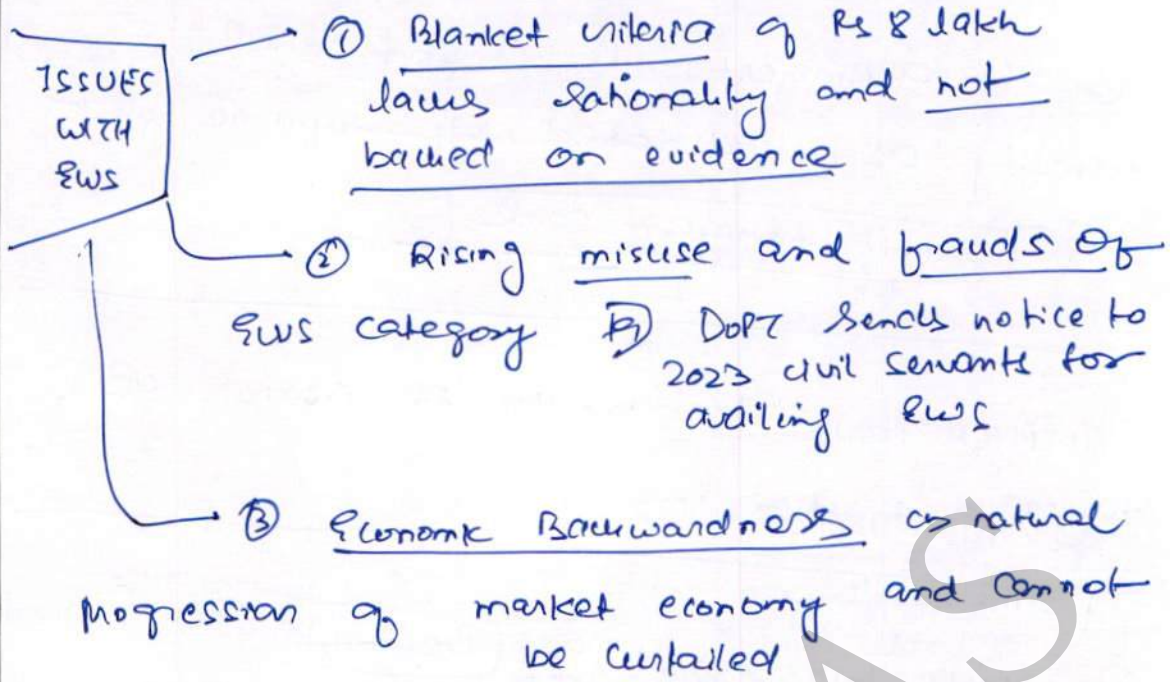 ISSUES
WITH
EWS
① Blanket criteria of Rs 8 lakh
lacks rationality and not
backed on evidence
② Rising misuse and frauds of
EWS category Eg DoPT sends notice to
2023 civil servants for
availing EWS
③ Economic Backwardness as natural
progression of market economy and cannot
be curtailed
AS